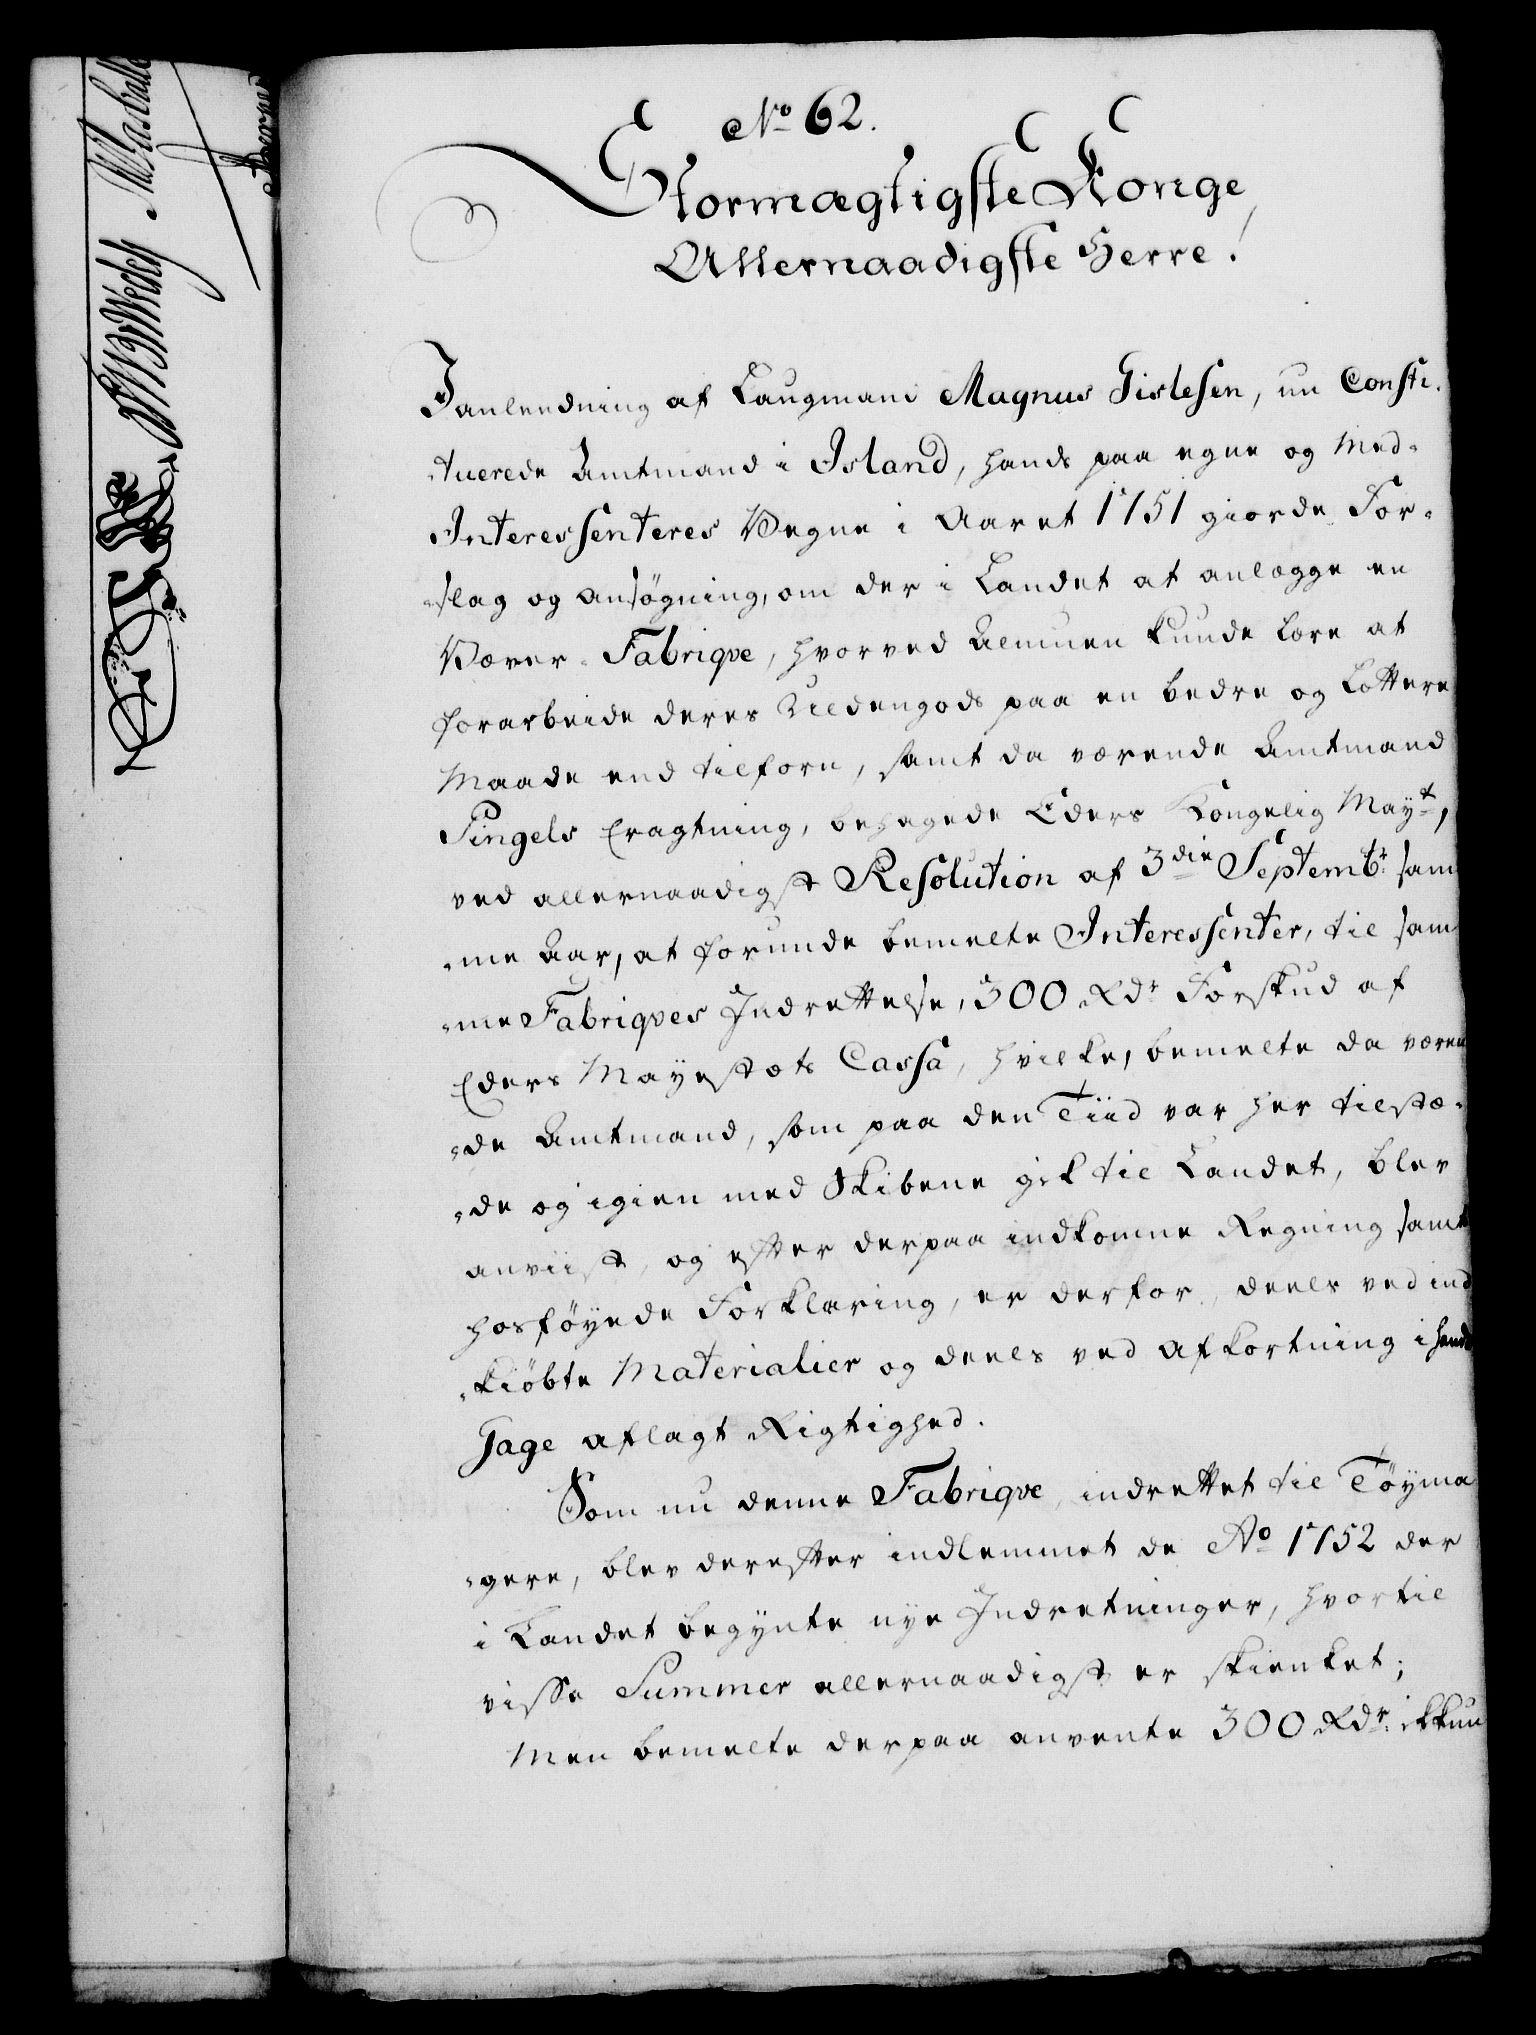 No 62.
Stormægtigste Konge
Allernaadigste Herre!
I anledning af Laugmand Magnus Gislesen, nu Consti-
-tuerede Amtmand i Island, hands paa egne og Med-
Interessenteres Vegne i Aaret 1751 giorde For-
-slag og ansøgning, om der i Landet at anlægge en
Væver-Fabriqve, hvorved Almuen kunde lære at
forarbeide deres Uldengods paa en bedre og lettere
Maade end tilforn, samt da værende Amtmand
Pingels Eragtning, behagede Eders Kongelig Mayt,
ved allernaadigst Resolution af 3die Septembr. sam
-me Aar, at forunde bemelte Interessenter, til sam
-me Fabriqves Indrettelse, 300 Rdr Forskud af
Eders Mayestæts Cassa, hvilke, bemelte da væren
-de Amtmand, som paa den Tiid var her tilstæ-
-de og igien med Skibene gik til Landet, blev
anviist, og efter derpaa indkomne Regning samt
hosføyede Forklaring, er derfor, deels ved ind
-kiøbte Materialier og deels ved Afkortning i hands
Gage aflagt Rigtighed.
Som nu denne Fabriqve, indrettet til Tøyma
-gere, blev derefter indlemmet de Ao 1752 der
i Landet begynte nye Indretninger, hvortil
visse Summer allernaadigst er skienket;
Men bemelte derpaa anvente 300 Rdr. ikkun